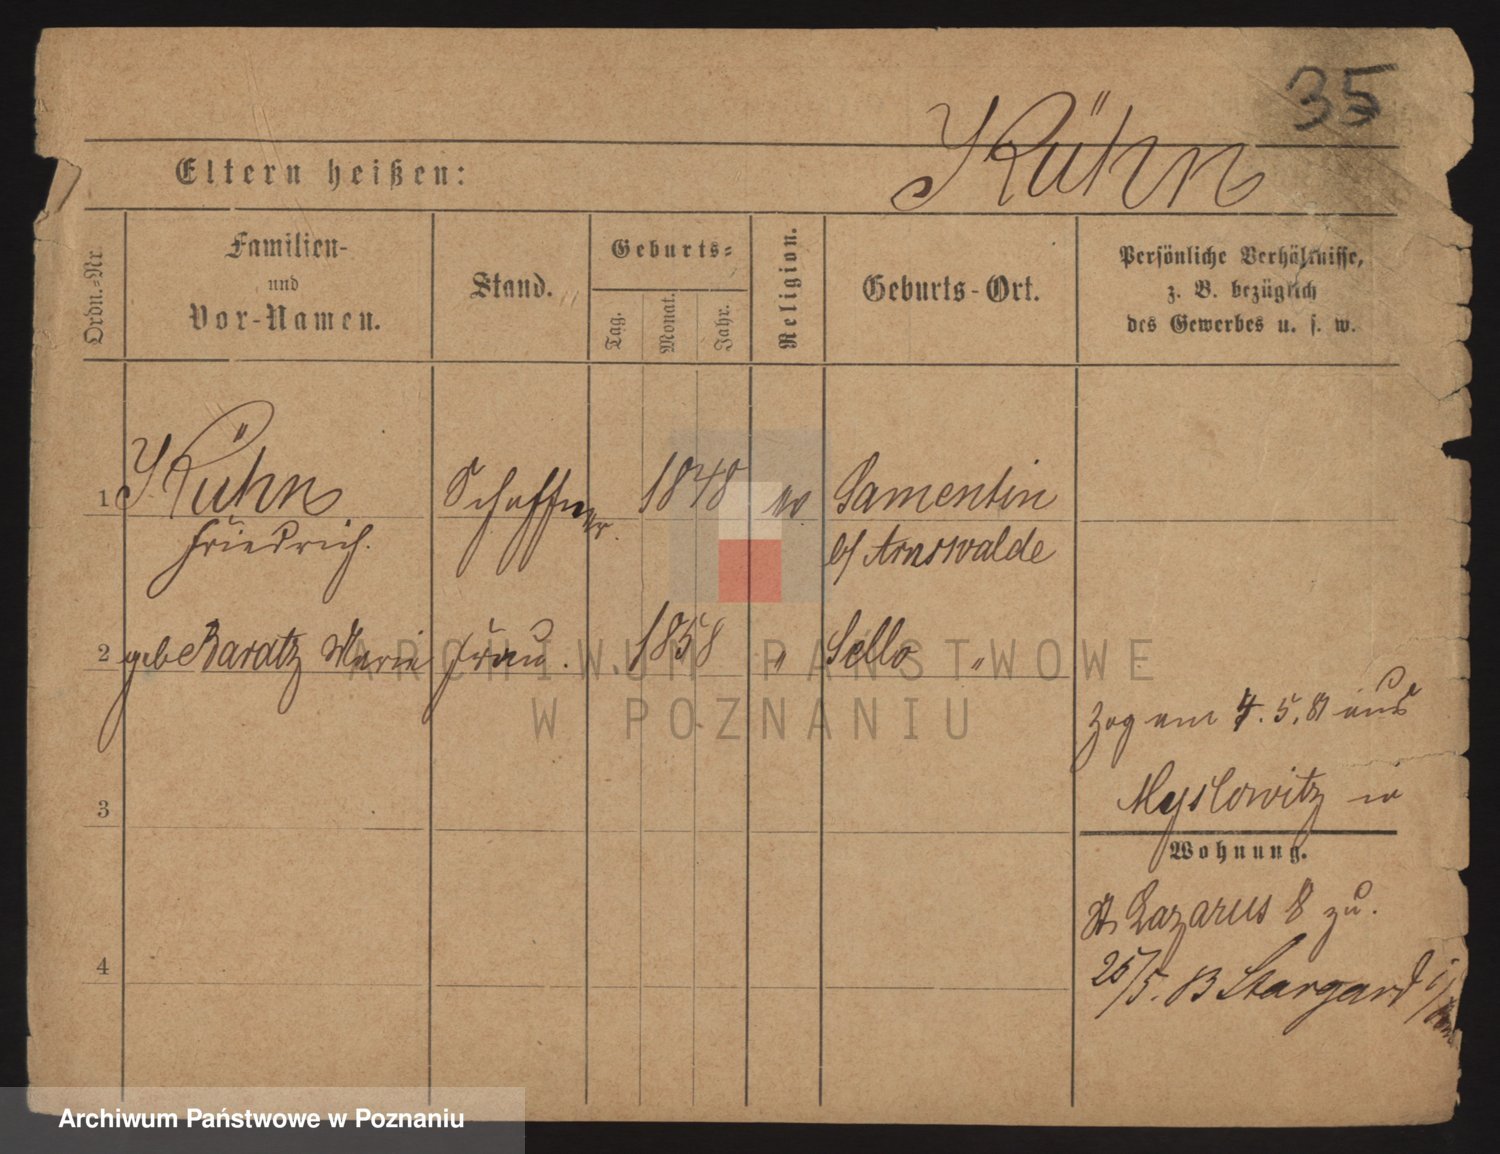 35
Kühn
Eltern heißen:
Ordn.-Nr.
Familien-
und
Vor-Namen.
Stand.
Geburts-
Tag.
Monat.
Jahr.
Religion.
Geburts-Ort.
Persönliche Verhältnisse,
z. B. bezüglich
des Gewerbes u. s. w.
1 Kühn Schaffner 1848 Samentin
Friedrich. b/ Arnswalde
2 geb Baratz Marie Frau. 1858 " Sello "
ARCHIWUM PAŃSTWOWE
W POZNANIU
Zog am 4. 5. 81 aus
Myslowitz
3
Wohnung.
St Lazarus 8 zu.
4
25/5. Stargard i/
Archiwum Państwowe w Poznaniu